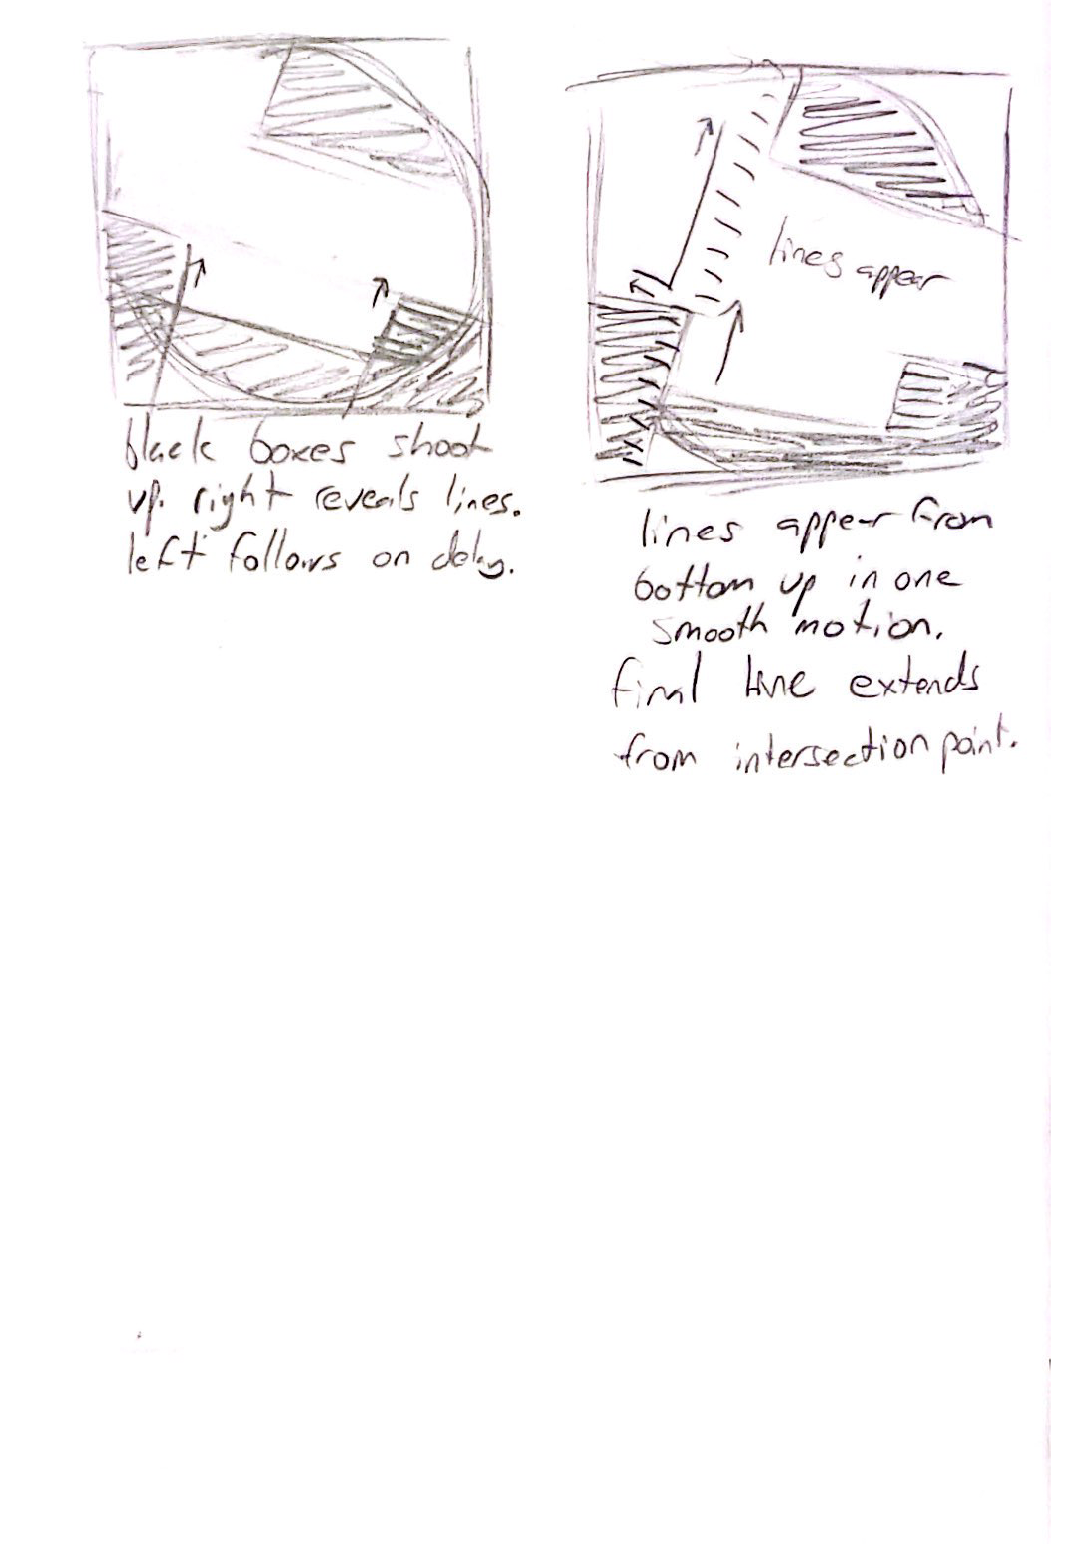 black boxes shoot
up. right reveals lines.
left follows on delay.
lines appear
lines appear from
bottom up in one
smooth motion.
final line extends
from intersection point.